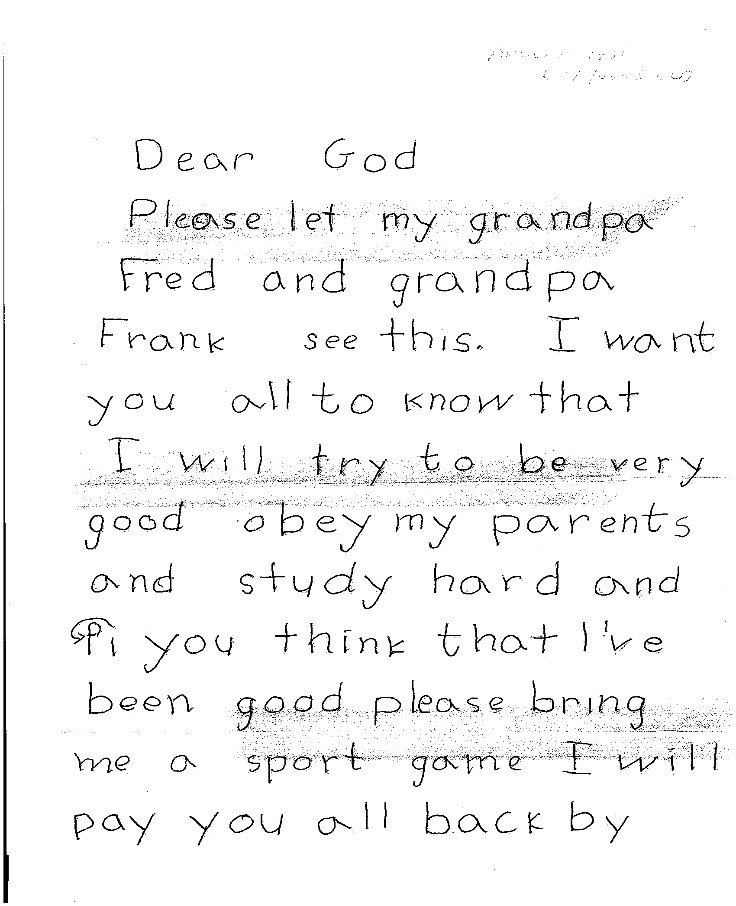 Dear God
Please let my grandpa
Fred and grandpa
Frank see this. I want
you all to know that
I will try to be very
good obey my parents
and study hard and
you think that I've
been good please bring
me a sport game I will
pay you all back by